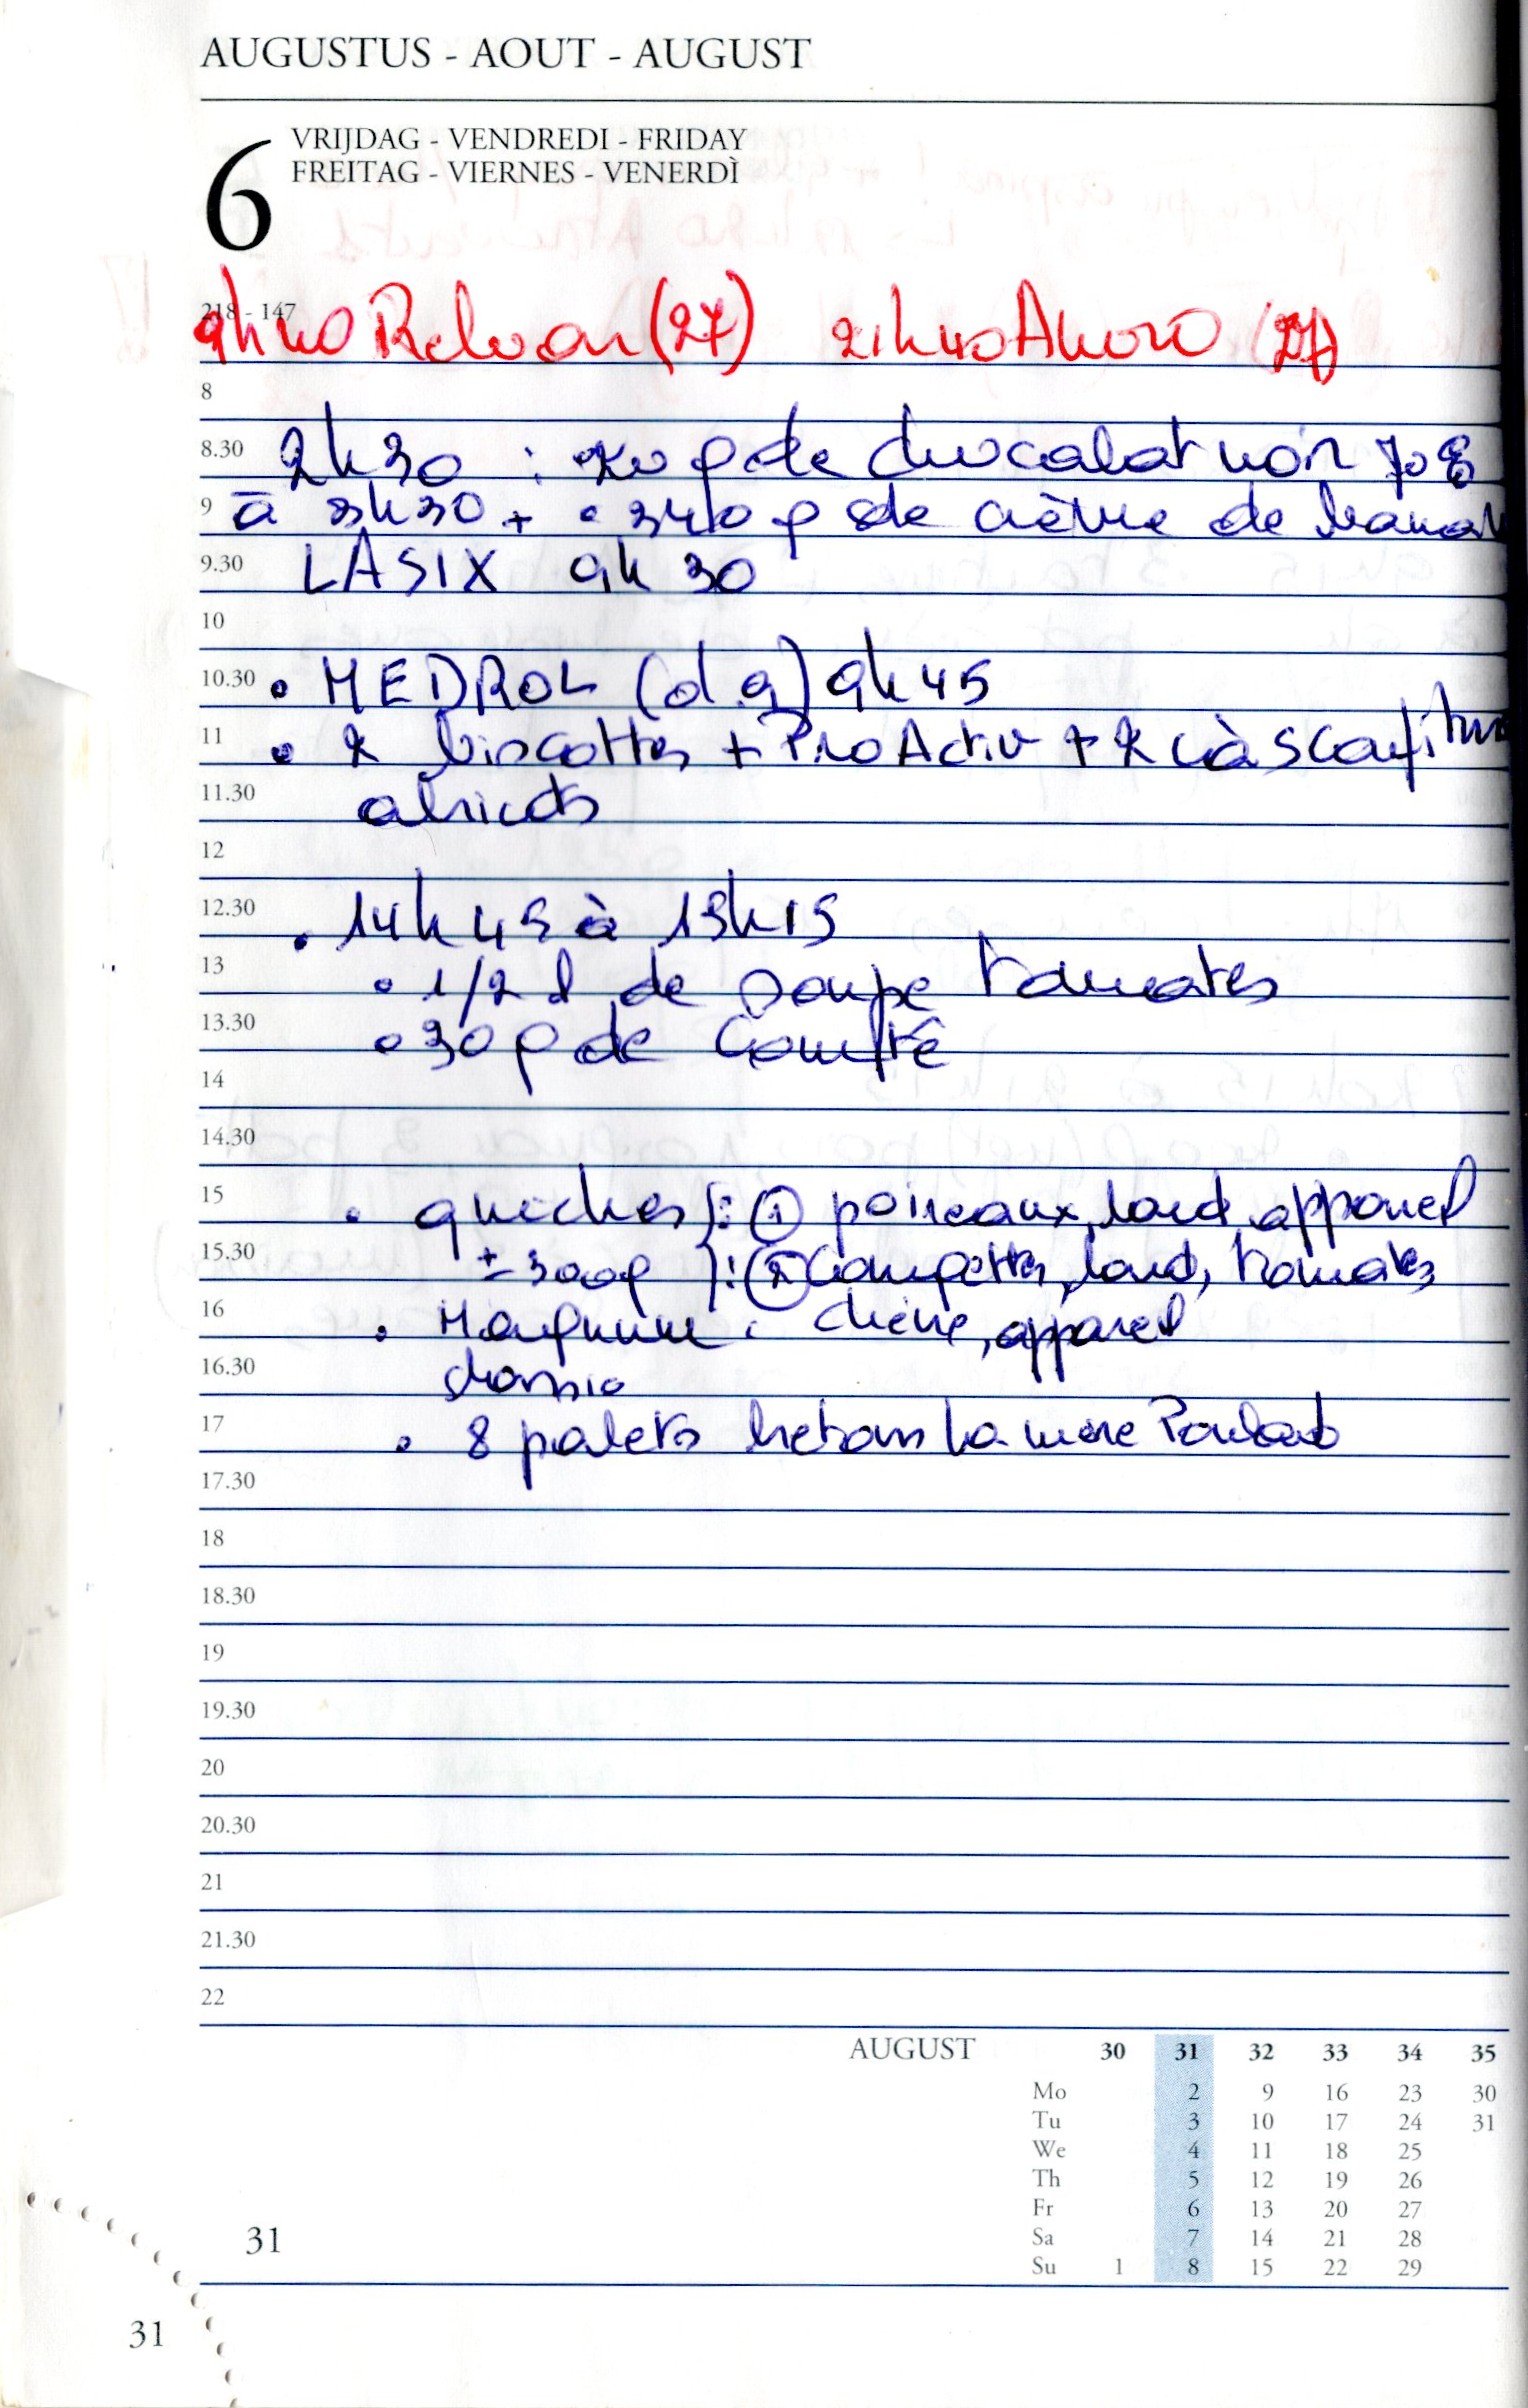 AUGUSTUS - AOUT - AUGUST
6
VRIJDAG - VENDREDI - FRIDAY
FREITAG - VIERNES - VENERDÌ
218 - 147
9h40 Relvar (27) 21h40 Anoro (27)
8
8.30 2h30 : g de chocolat noir 70
9 à 3h30 + • 340 g de crème de
9.30 LASIX 9h30
10
10.30 • MEDROL (d.g) 9h45
11 • 2 biscottes + ProActiv + 2 c à s confiture
11.30 abricots
12
12.30 • 14h45 à 15h15
13 • 1/2 l de soupe tomates
13.30 • 30 g de Comté
14
14.30
15 • quiches : ① poireaux, lard, appareil
15.30 ± 300g : ② Courgettes, lard, tomates
16 • chèvre, appareil
16.30
17 • 8 palets bretons La mère Poulard
17.30
18
18.30
19
19.30
20
20.30
21
21.30
22
AUGUST 30 31 32 33 34 35
Mo 2 9 16 23 30
Tu 3 10 17 24 31
We 4 11 18 25
Th 5 12 19 26
Fr 6 13 20 27
Sa 7 14 21 28
Su 1 8 15 22 29
31
31